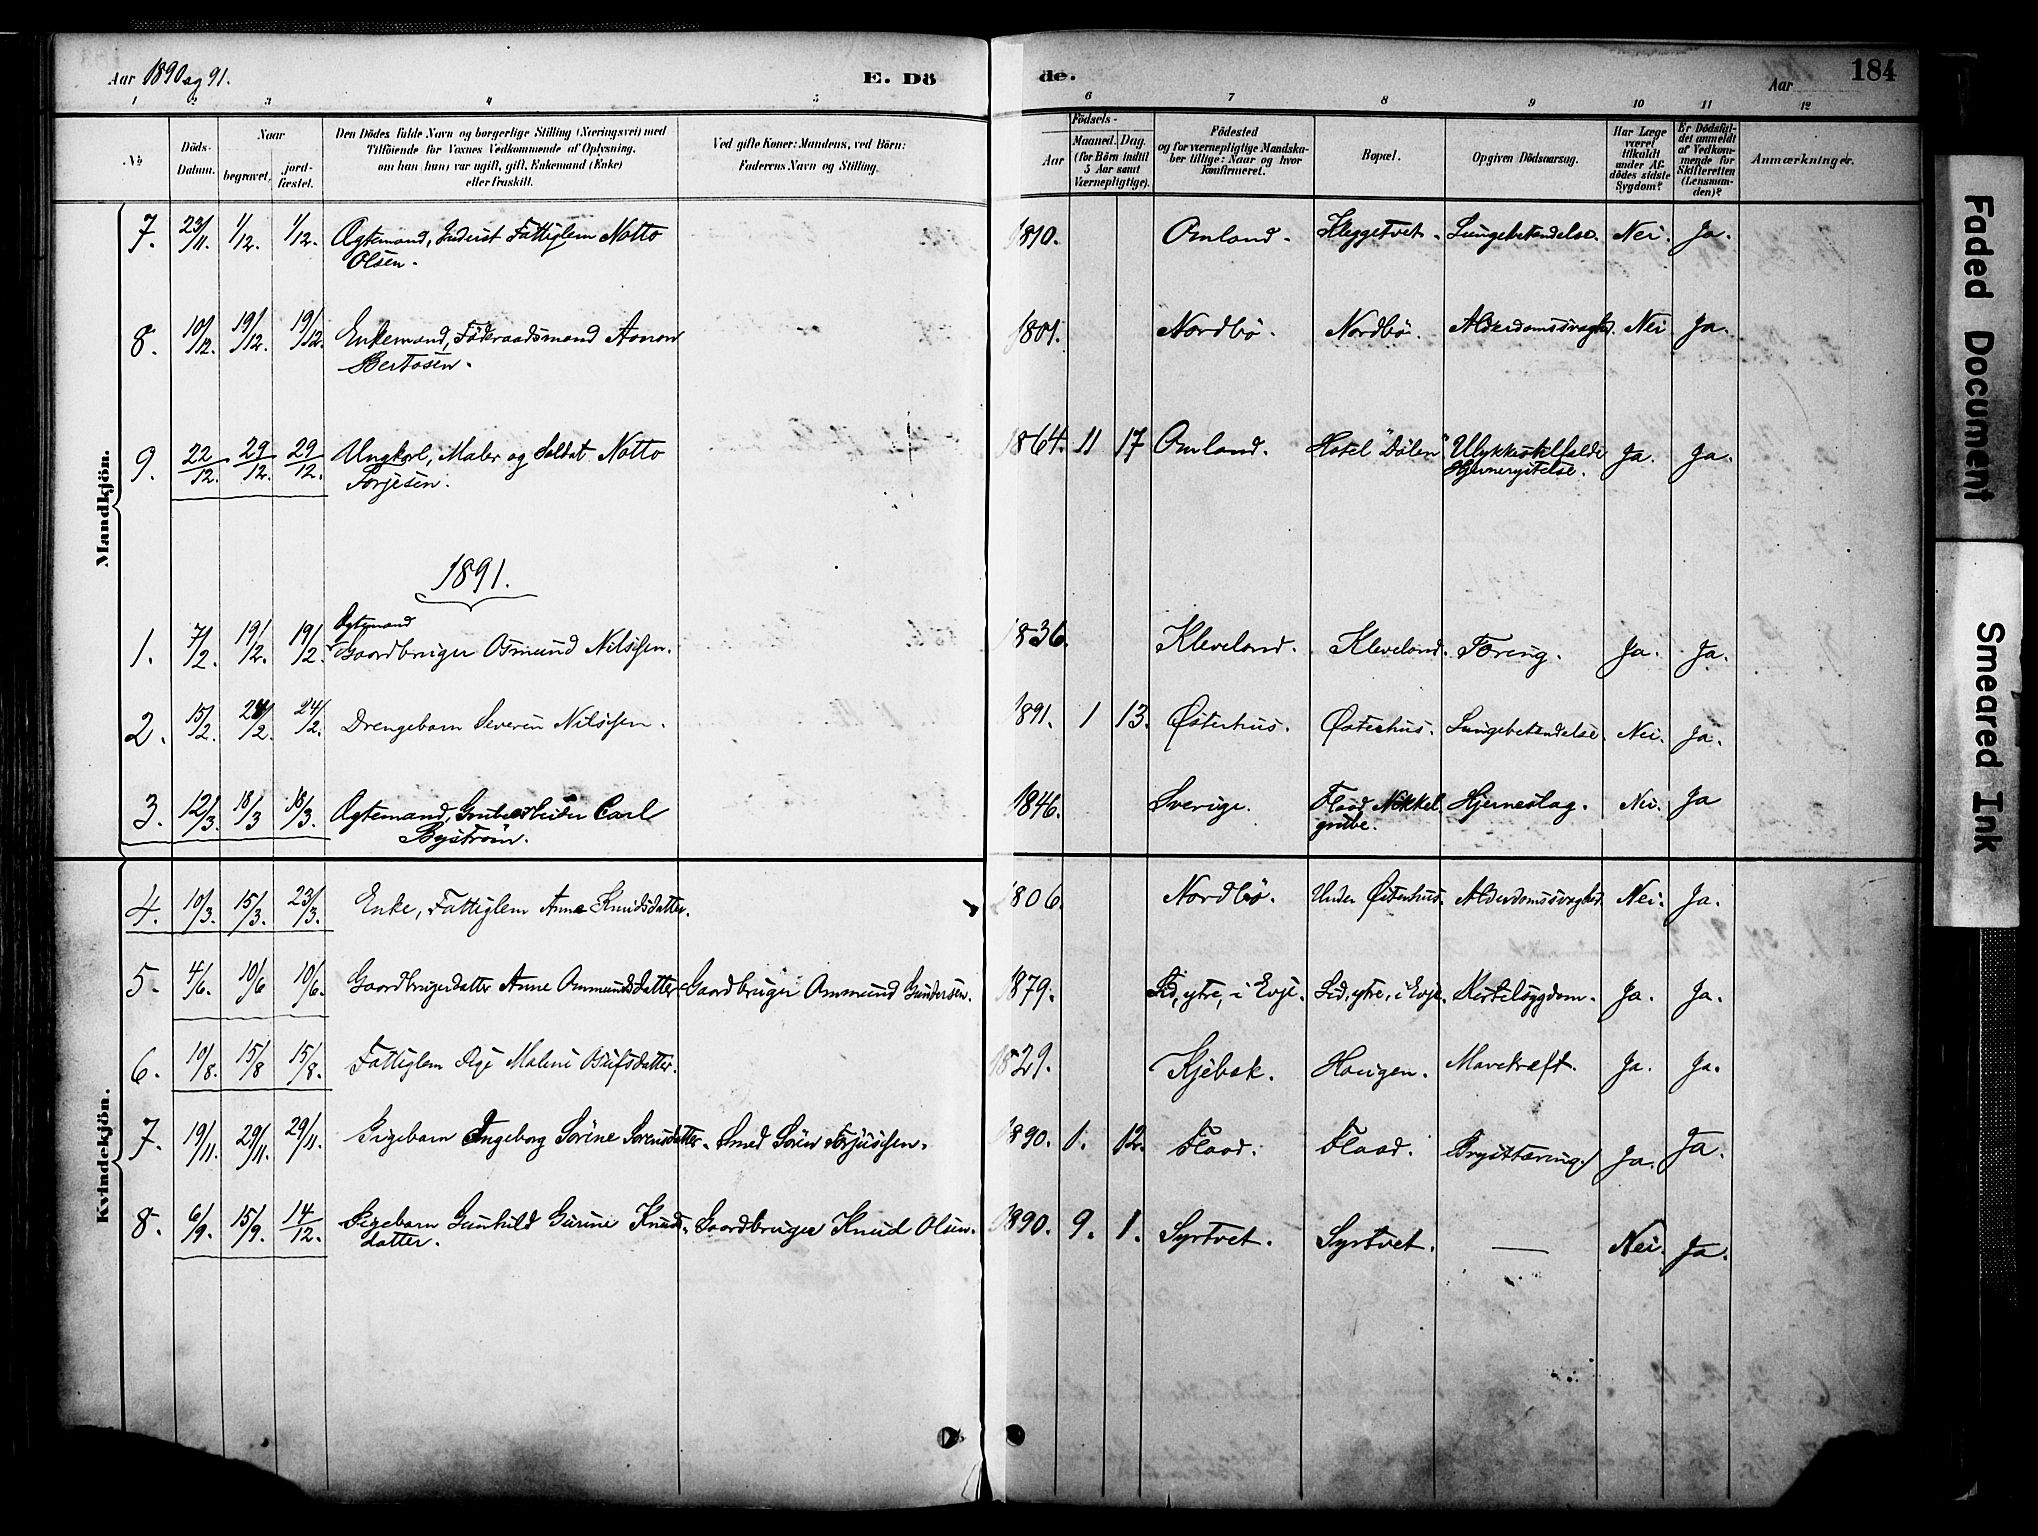 Aar 1890 og 91.
E. Dö
de.
Aar
184
1 2 3 4 5 6 7 8 9 10 11 12
No
Döds-Datum.
Naar
begravet.
jord-fæstet.
Den Dödes fulde Navn og borgerlige Stilling (Næringsvei) med
Tilföiende for Voxnes Vedkommende af Oplysning,
om han (hun) var ugift, gift, Enkemand (Enke)
eller fraskilt.
Ved gifte Koner: Mandens, ved Börn:
Faderens Navn og Stilling.
Födsels-
Aar
Maaned. Dag.
(for Börn indtil
5 Aar samt
Værnepligtige).
Födested
og for værnepligtige Mandska-
ber tillige: Naar og hvor
konfirmeret.
Bopæl.
Opgiven Dödsaarsag.
Har Læge
været
tilkaldt
under Af-
dödes sidste
Sygdom?
Er Dödsfal-
det anmeldt
af Vedkom-
mende for
Skifteretten
(Lensman-
den)?
Anmærkninger.
Mandkjön.
7. 23/11. 1/12. 1/12. Ægtemand, Inderst Fattiglem Notto 1810. Omland. Kleggetvet. Lungebetændelse. Nei. Ja.
Olsen.
8. 10/12. 19/12. 19/12. Enkemand, Föderaadsmand Aanon 1801. Nordbö. Nordbö. Alderdomssvaghed. Nei Ja.
Bertosen.
9. 22/12. 29/12. 29/12. Ungkarl, Maler og Soldat Notto 1864. 11 17 Omland. Hotel "Dölen" Ulykkestilfælde Ja. Ja.
Torjesen. Hjernerystelse.
1891.
Ægtemand
1. 7/2. 19/2. 19/2. Gaardbruger Osmund Nilsen. 1836. Kleveland. Kleveland. Tæring. Ja. Ja.
2. 15/2. 24/2. 24/2. Drengebarn Severin Nilsen. 1891. 1 13. Østerhus. Østerhus. Lungebetændelse. Nei. Ja.
3. 12/3. 18/3 18/3. Ægtemand, Grubearbeider Carl 1846. Sverige. Flaad Nikkel Hjerneslag. Nei. Ja
Byström. grube.
Kvindekjön.
4. 10/3. 15/3. 23/3. Enke, Fattiglem Anne Knudsdatter. 1806. Nordbö. Under Østerhus. Alderdomssvaghed. Nei. Ja.
5. 4/6. 10/6 10/6. Gaardbrugerdatter Anne Ommundsdatter. Gaardbruger Ommund Gundersen. 1879. Lid, ytre, i Evje. Lid, ytre, i Evje. Kirtelsygdom. Ja. Ja.
6. 10/8. 15/8 15/8. Fattiglem Pige Maleni Osufsdatter. 1829. Kjebek. Haugen. Mavekræft. Ja. Ja.
7. 19/11. 29/11. 29/11. Pigebarn Ingeborg Sörine Sorensdatter. Smed Sören Torjusen. 1890. 1. 12. Flaad. Flaad. Brysttæring. Ja. Ja.
8. 6/9. 15/9. 14/12. Pigebarn Gunhild Gurine Knuds- Gaardbruger Knud Olsen. 1890. 9. 1. Syrtvet. Syrtvet. — Nei. Ja.
datter.
Faded Document
Smeared Ink